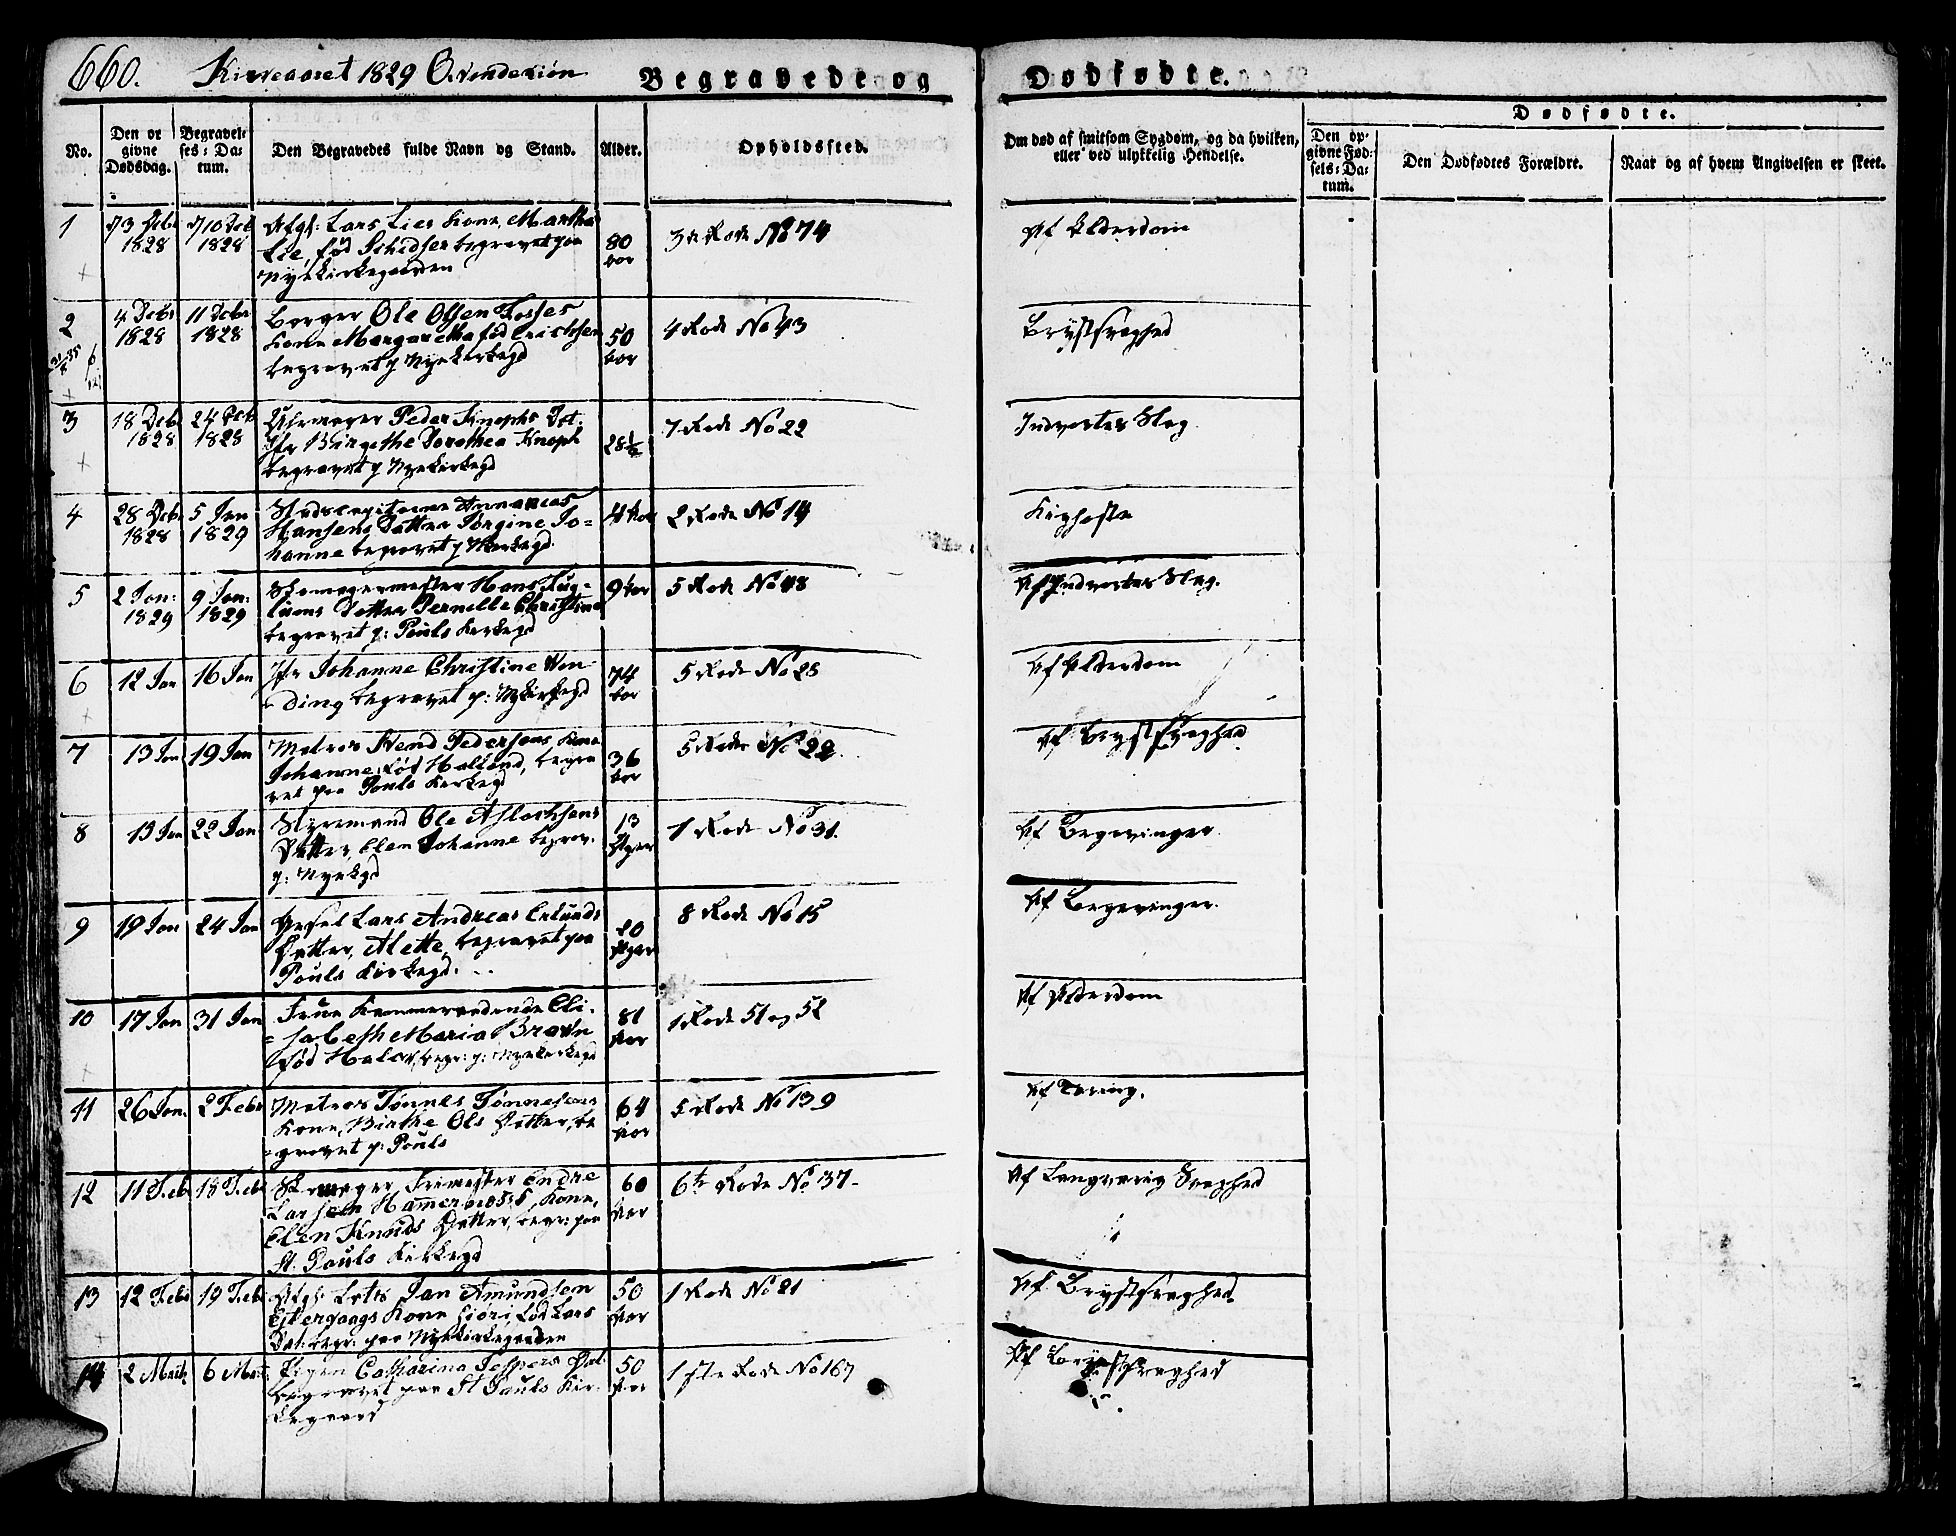 660. Kirkeaaret 1829 Qvindekiön
Begravede og Dødfødte.
Dødfødte.
No.
Den opgivne Dødsdag.
Begravelses-Datum.
Den Begravedes fulde Navn og Stand.
Alder.
Opholdssted.
Om død af smitsom Sygdom, og da hvilken, eller ved ulykkelig Hendelse.
Den opgivne Fødsels-Datum.
Den Dødfødtes Forældre.
Naar og af hvem Angivelsen er skeet.
1 3 Decbr 1828 10 Dec 1828 Afg: Lars Lies Kone, Martha
Lie, fød begravet paa
Nyekirkegaarden 80 aar 3de Rode No 74 Af Alderdom
2 4 Decbr 1828 11 Decbr 1828 Borger Ole Olsen Fosses
Kone Margaretha fød Erichsen
begravet p Nyekirkegd 50 aar 4 Rode No 43 Brystsvaghed
3 18 Decbr 1828 24 Decb 1828 Uhrmager Peder Knophs Dat:
Jfr Birgithe Dorothea Knoph
begravet p Nyekirkegd 28½ 7 Rode No 22 Indvortes Slag
4 28 Decbr 1828 5 Jan 1829 Hansens Datter Jørgine Jo=
hanne begravet p Nkirkegd 4 Aar 2 Rode No 14 Kighoste
5 2 Jan: 1829 9 Jan: 1829 Skomagermester Hans
Datter Pernille Christine
begravet p: Pouls Kirkegd 9 Aar 5 Rode No 48 Af Indvortes Slag.
6 12 Jan 16 Jan Jfr Johanne Christine Wen-
ding begravet p: Nykirkegd 74 aar 5 Rode No 28 Af Alderdom
7 13 Jan 19 Jan Matros Svend Pedersens Kone
Johanne, fød Halland, begra
vet paa Pouls Kirkegd 36 aar 5 Rode No 22. Af Brystsvaghed
8 13 Jan 22 Jan Styrmand Ole Aslachsens
Datter, Elen Johanne begrav.
p: Nyekgd 13 Uger 1 Rode No 31. Af Begevinger.
9 19 Jan 24 Jan Lars Andreas Erlunds
Datter, Alette, begravet paa
Pouls Kirkegd. 20 Uger 8 Rode No 15 Af Begevinger.
10 17 Jan 31 Jan Frue Kammerraadinde Eli-
sabeth Maria
fød begr: p: Nyekirkegd 81 Aar 1 Rode 51 og 52 Af Alderdom
11 26 Jan. 2 Febr Matros Tønnes Tønnesens
Kone, Birthe Ols Datter, be
gravet p: Pouls 64 Aar 5 Rode No 139 Af Tæring.
12 11 Feb 18 Feb Skomager, Frimester Endre
Larsen Kone,
Elen Knuds Datter, begr: paa
St. Pauls Kirkegd 60 Aar 6te Rode No 37- Af Langvarig Svaghed
13 12 Febr 19 Feb Afg: Jan Amundsen
Kone fød Lars
Dat: begr: paa Nyekirkegaarden 50 Aar 1 Rode No 21 Af Brystsvaghed.
14 2 Marts 6 Mar Pigen Catharina Jespers Dat:
begravet paa St Pauls Kir-
kegaard 50 Aar 1ste Rode No 167 Af Brystsvaghed